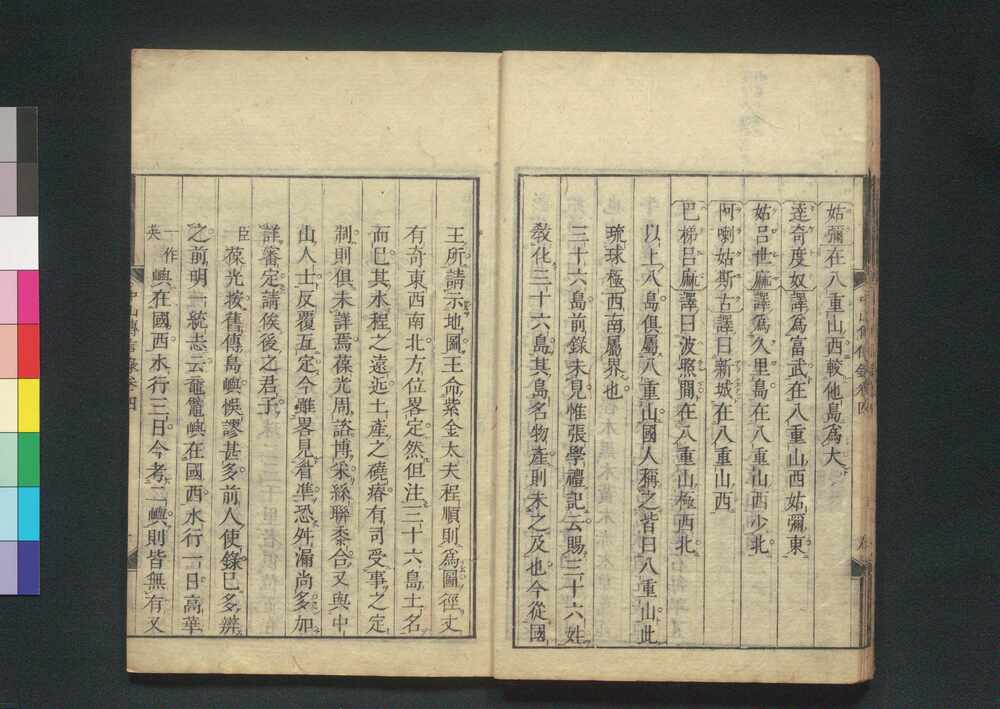 姑彌在八重山西較他島爲大
達奇度奴譯爲富武在八重山西姑彌東
姑呂世麻譯爲久里島在八重山西少北
阿喇姑斯古譯曰新城在八重山西
巴梯呂麻譯曰波照間在八重山極西北
以上八島俱屬八重山國人稱之皆曰八重山此
琉球極西南屬界也
三十六島前錄未見惟張學禮記云賜三十六姓
敎化三十六島其島名物產則未之及也今從國
王所請示地圖王命紫金大夫程順則爲圖徑丈
有奇東西南北方位畧定然但注三十六島土名
而已其水程之遠近土產之磽瘠有司受事之定
制則俱未詳焉葆光周諮博采絲聯黍合又與中
山人士反覆互定今雖畧見眉準恐舛漏尚多加
詳審定請俟後之君子
臣葆光按舊傳島嶼悞謬甚多前人使錄已多辨
之前明一統志云黿鼊嶼在國西水行一日高華
一作英嶼在國西水行三日今考二嶼則皆無有又
中山傳信錄卷四